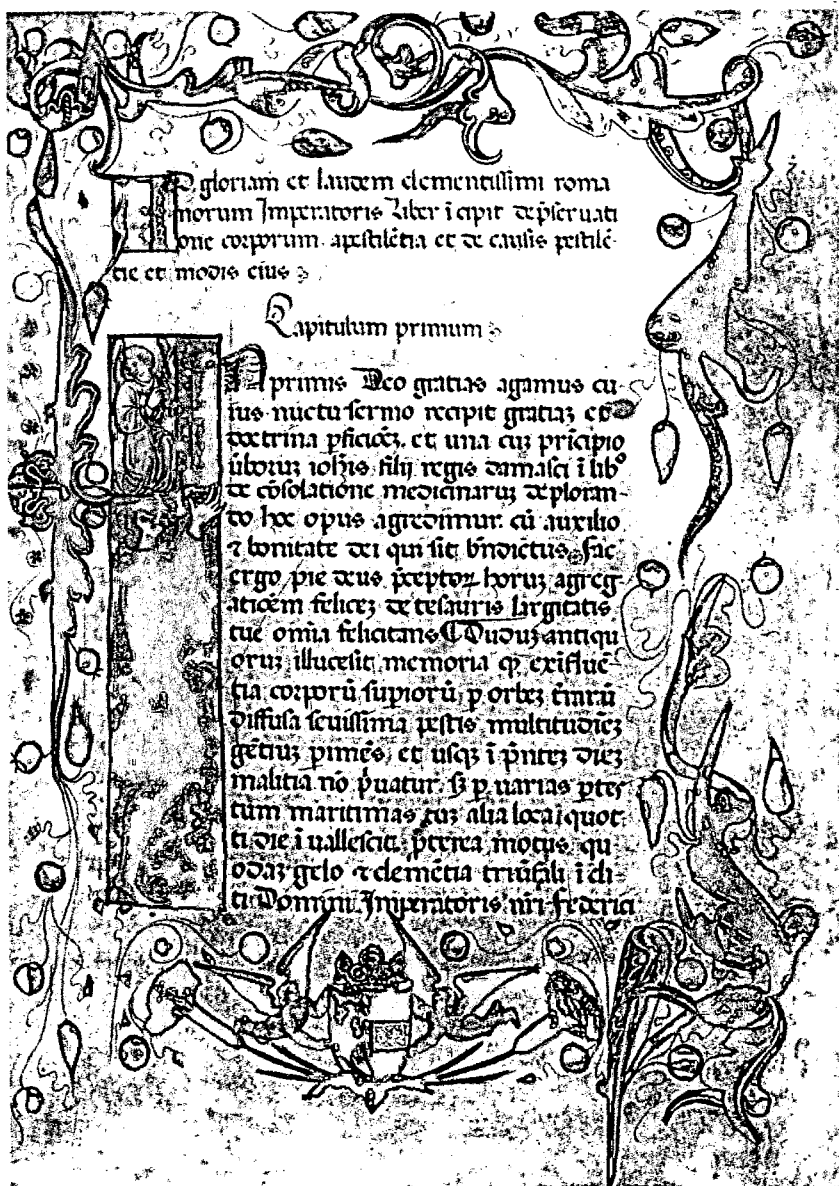 AD gloriam et laudem clementissimi roma
norum Imperatoris Liber īcipit de p̄seruati
one corporum apestilētia et de causis pestilē-
tie et modis eius
Capitulum primum
IN primis Deo gratias agamus cu-
ius nuctu sermo recipit gratiaʒ et
doctrina ꝑficiōeʒ. et una cuʒ prīcipio
uerboruʒ ioh̄is filii regis damasci ī lib°
de cōsolatione medicinaruʒ deploran-
do hoc opus agredimur. cū auxilio
⁊ bonitate dei qui sit bn̄dictus. fac
ergo pie deus p̄ceptoꝝ horuʒ agreg-
atiōem feliceʒ de tesauris largitatis
tue om̄ia felicitans ¶ Duduʒ antiqu
oruʒ illucesit memoria ꝙ exifluē-
tia corporū supiorū ꝑ orbeʒ t̄rrarū
diffusa seuissima pestis multitudīeʒ
gētiuʒ ꝑimēs, et usqʒ ī p̄nteʒ dieʒ
malitia nō p̄uatur. sʒ ꝑ uarias ꝑtes
tum maritimas tuʒ alia loca ī quot
ti die ī uallescit. p̄terea motus quo
odaʒ gelo ⁊ clemētia triūfali ī cli-
ti Domini Imperatoris nr̄i Federici